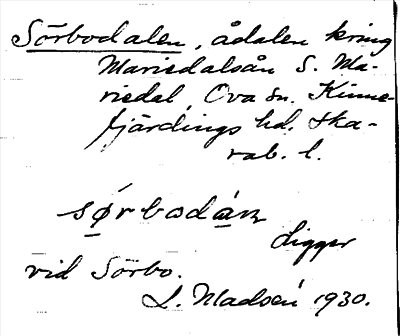 Sörbodalen, ådalen kring
Mariedalsån S. Ma-
riedal, Ova sn. Kinne-
fjärdings hd. Ska-
rab. l.
sørbodán
ligger
vid Sörbo.
L. Madsén 1930.